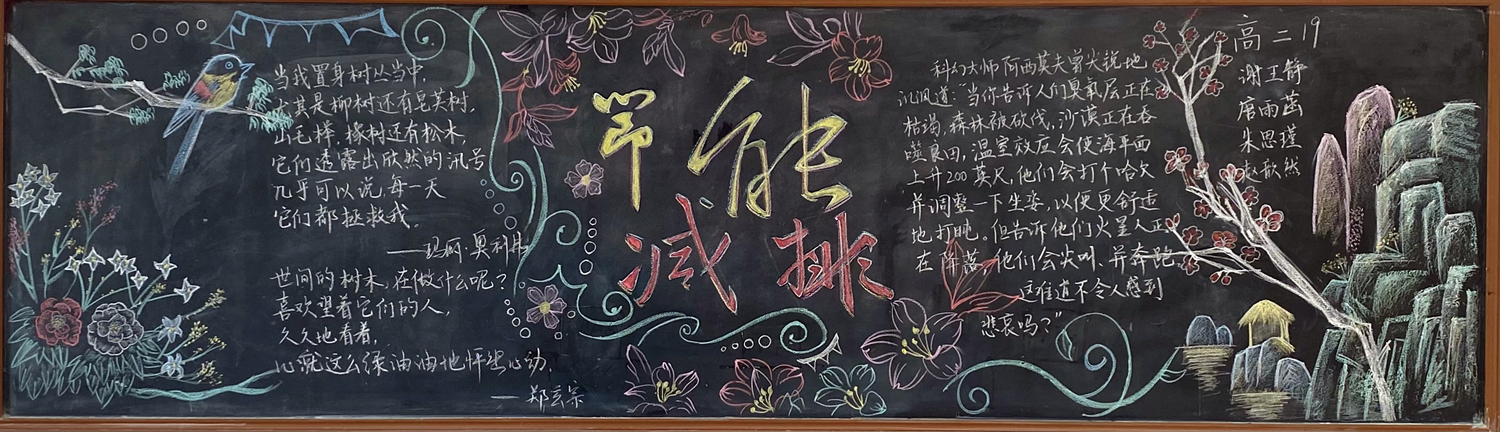 当我置身树丛当中,
尤其是柳树还有皂荚树,
山毛榉、橡树还有松木,
它们透露出欣然的讯号
几乎可以说,每一天
它们都拯救我。
——玛丽·奥利弗
世间的树木,在做什么呢?
喜欢望着它们的人,
久久地看着,
心就这么绿油油地怦然心动,
——郑玄宗
节能
减排
科幻大师阿西莫夫曾尖锐地
讥讽道:“当你告诉人们臭氧层正在
枯竭,森林被砍伐,沙漠正在吞
噬良田,温室效应会使海平面
上升200英尺,他们会打个哈欠
并调整一下坐姿,以便更舒适
地打盹。但告诉他们火星人正
在降落,他们会尖叫、并奔跑。
这难道不令人感到
悲哀吗?”
高二19
谢王静
唐雨菡
朱思瑾
赵歆然